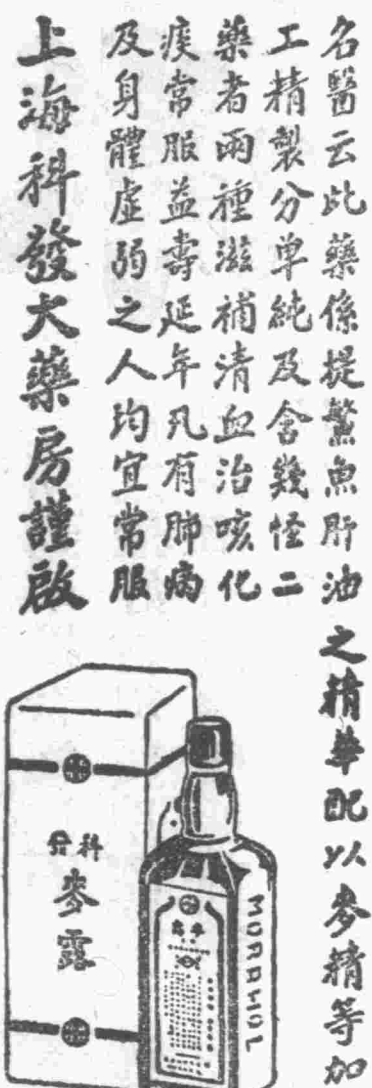 名醫云此藥係提鰵魚肝油之精華配以麥精等加
工精製分单純及含幾怪二
藥者兩種滋補清血治咳化
痰常服益壽延年凡有肺病
及身體虛弱之人均宜常服
上海科發大藥房謹啟
麥露
MORRHOL